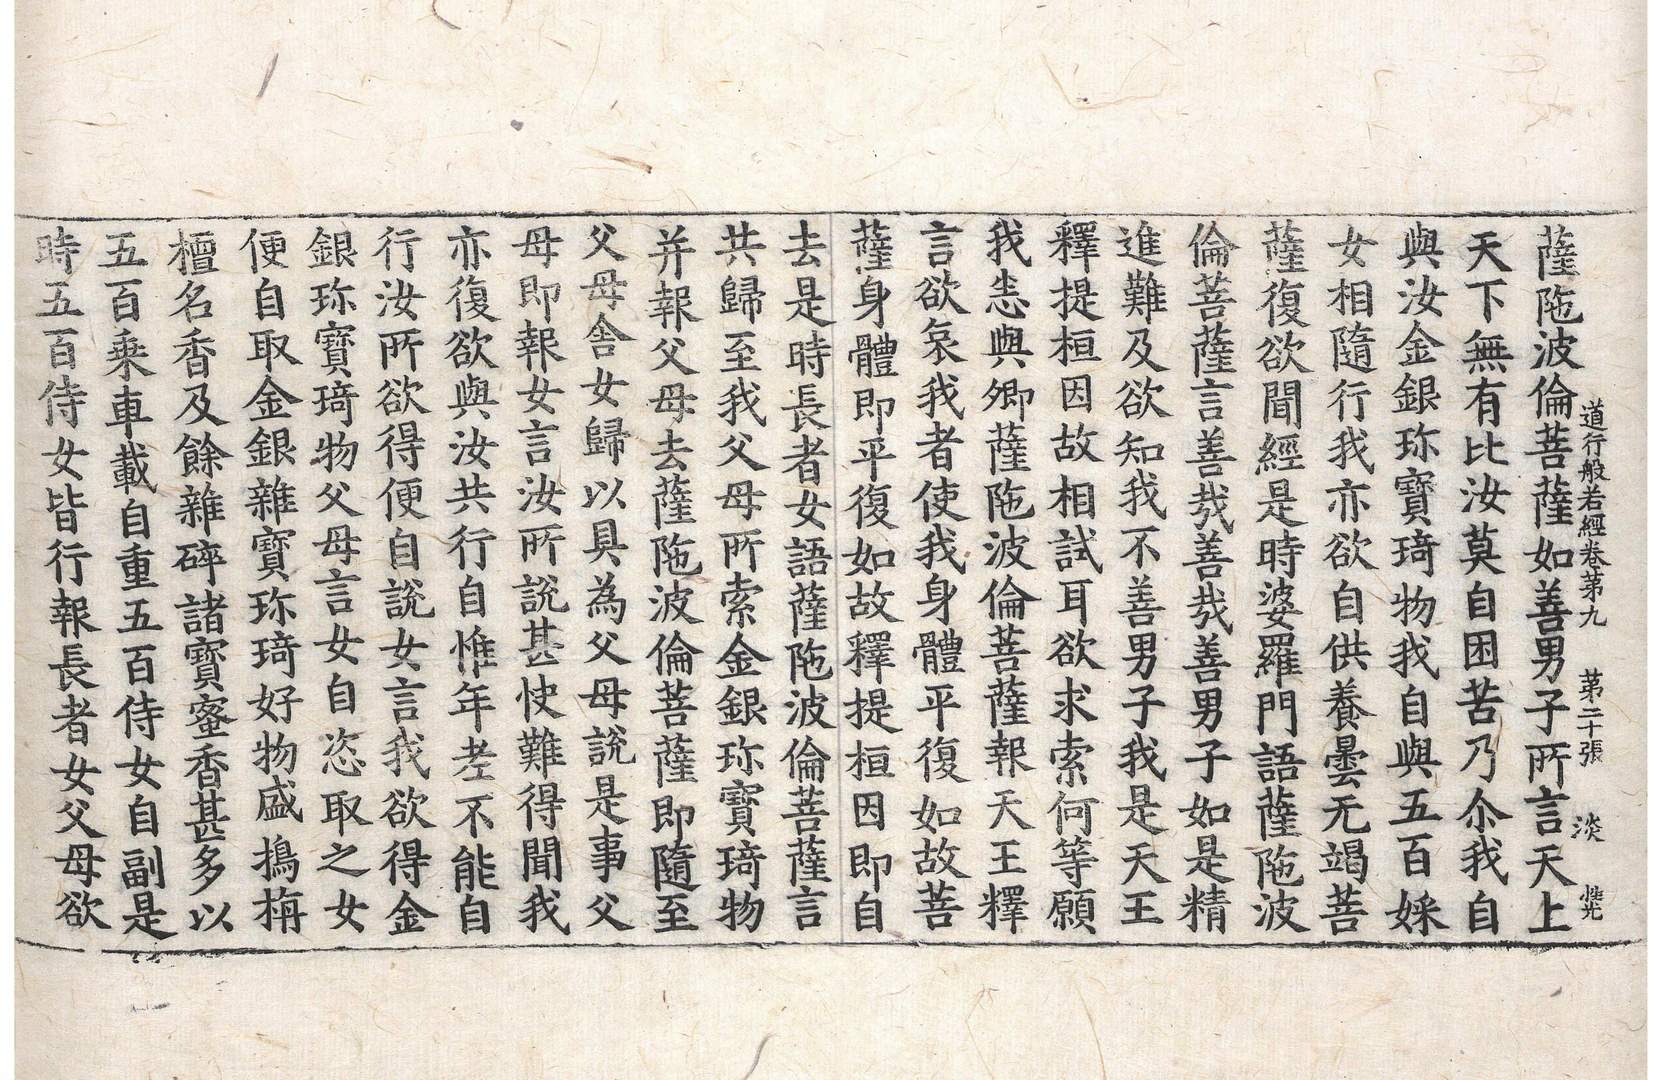 道行般若經卷第九　第二十張　淡
薩陁波倫菩薩如善男子所言天上
天下無有比汝莫自困苦乃尒我自
與汝金銀珎寶琦物我自與五百婇
女相隨行我亦欲自供養曇无竭菩
薩復欲聞經是時婆羅門語薩陁波
倫菩薩言善哉善哉善男子如是精
進難及欲知我不善男子我是天王
釋提桓因故相試耳欲求索何等願
我悉與卿薩陁波倫菩薩報天王釋
言欲哀我者使我身體平復如故菩
薩身體即平復如故釋提桓因即自
去是時長者女語薩陁波倫菩薩言
共歸至我父母所索金銀珎寶琦物
并報父母去薩陁波倫菩薩即隨至
父母舍女歸以具為父母說是事父
母即報女言汝所說甚快難得聞我
亦復欲與汝共行自惟年老不能自
行汝所欲得便自說女言我欲得金
銀珎寶琦物父母言女自恣取之女
便自取金銀雜寶珎琦好物盛擣栴
檀名香及餘雜碎諸寶蜜香甚多以
五百乘車載自重五百侍女自副是
時五百侍女皆行報長者女父母欲